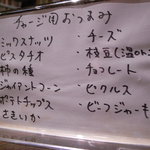 チャージ用おつまみ
ミックスナッツ
ピスタチオ
柿の種
ジャイアントコーン
ポテトチップス
さきいか
・チーズ
・枝豆(温or
・チョコレート
・ピクルス
・ビーフジャーキ